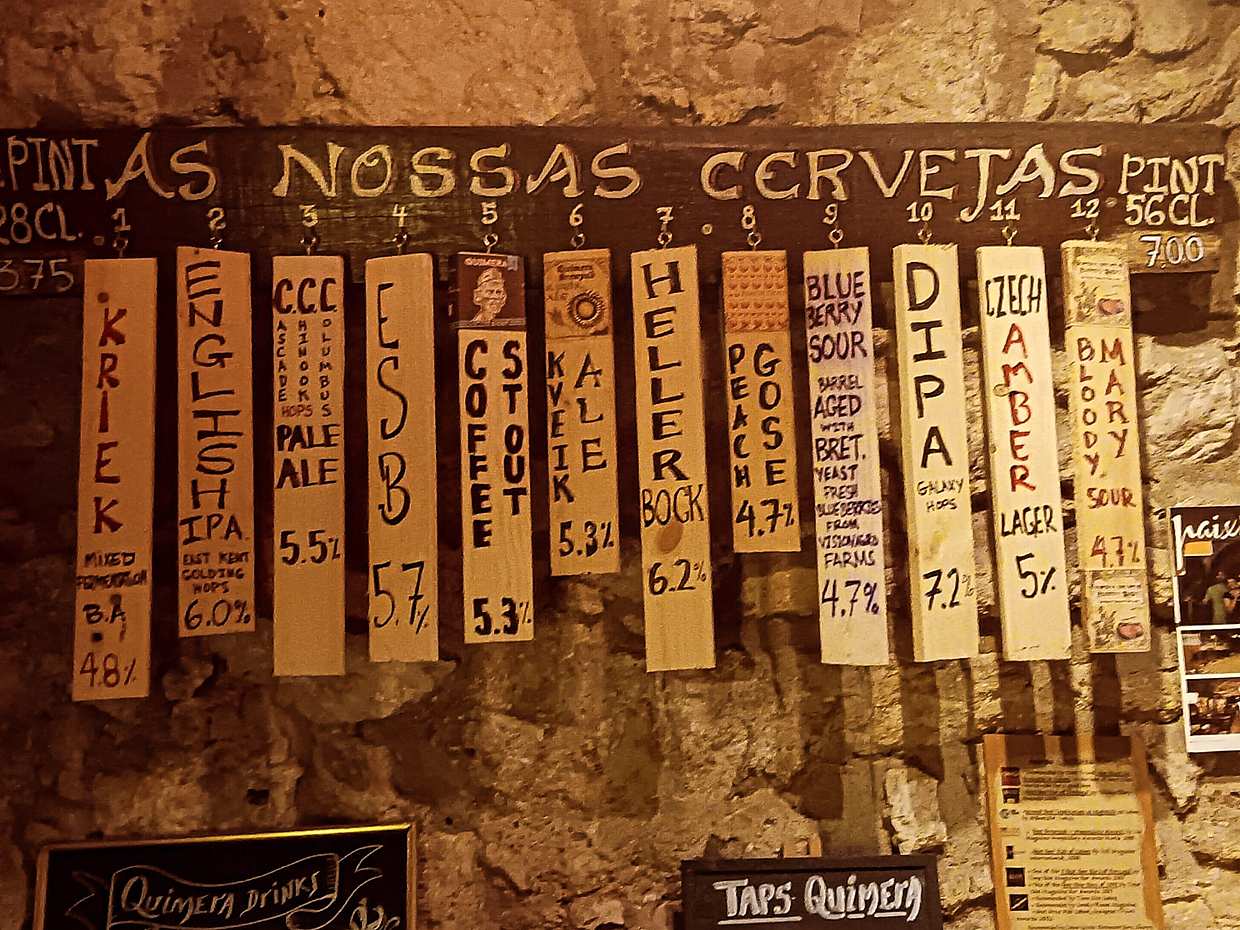 PINT AS NOSSAS CERVEJAS PINT
28CL. 56CL.
375 7.00
1 2 3 4 5 6 7 8 9 10 11 12
KRIEK
MIXED
FERMENTATION
B.A
4.8%
ENGLISH
IPA
EAST KENT
GOLDING
HOPS
6.0%
C.C.C
CASCADE
CHINOOK
COLUMBUS
HOPS
PALE
ALE
5.5%
ESB
5.7%
QUIMERA
COFFEE
STOUT
5.3%
KVEIK
ALE
5.3%
HELLER
BOCK
6.2%
PEACH
GOSE
4.7%
BLUE
BERRY
SOUR
BARREL
AGED
WITH
BRET.
YEAST
FRESH
BLUEBERRIES
FROM
FARMS
4.7%
DIPA
GALAXY
HOPS
7.2%
CZECH
AMBER
LAGER
5%
BLOODY
MARY
SOUR
4.7%
QUIMERA DRINKS
TAPS QUIMERA